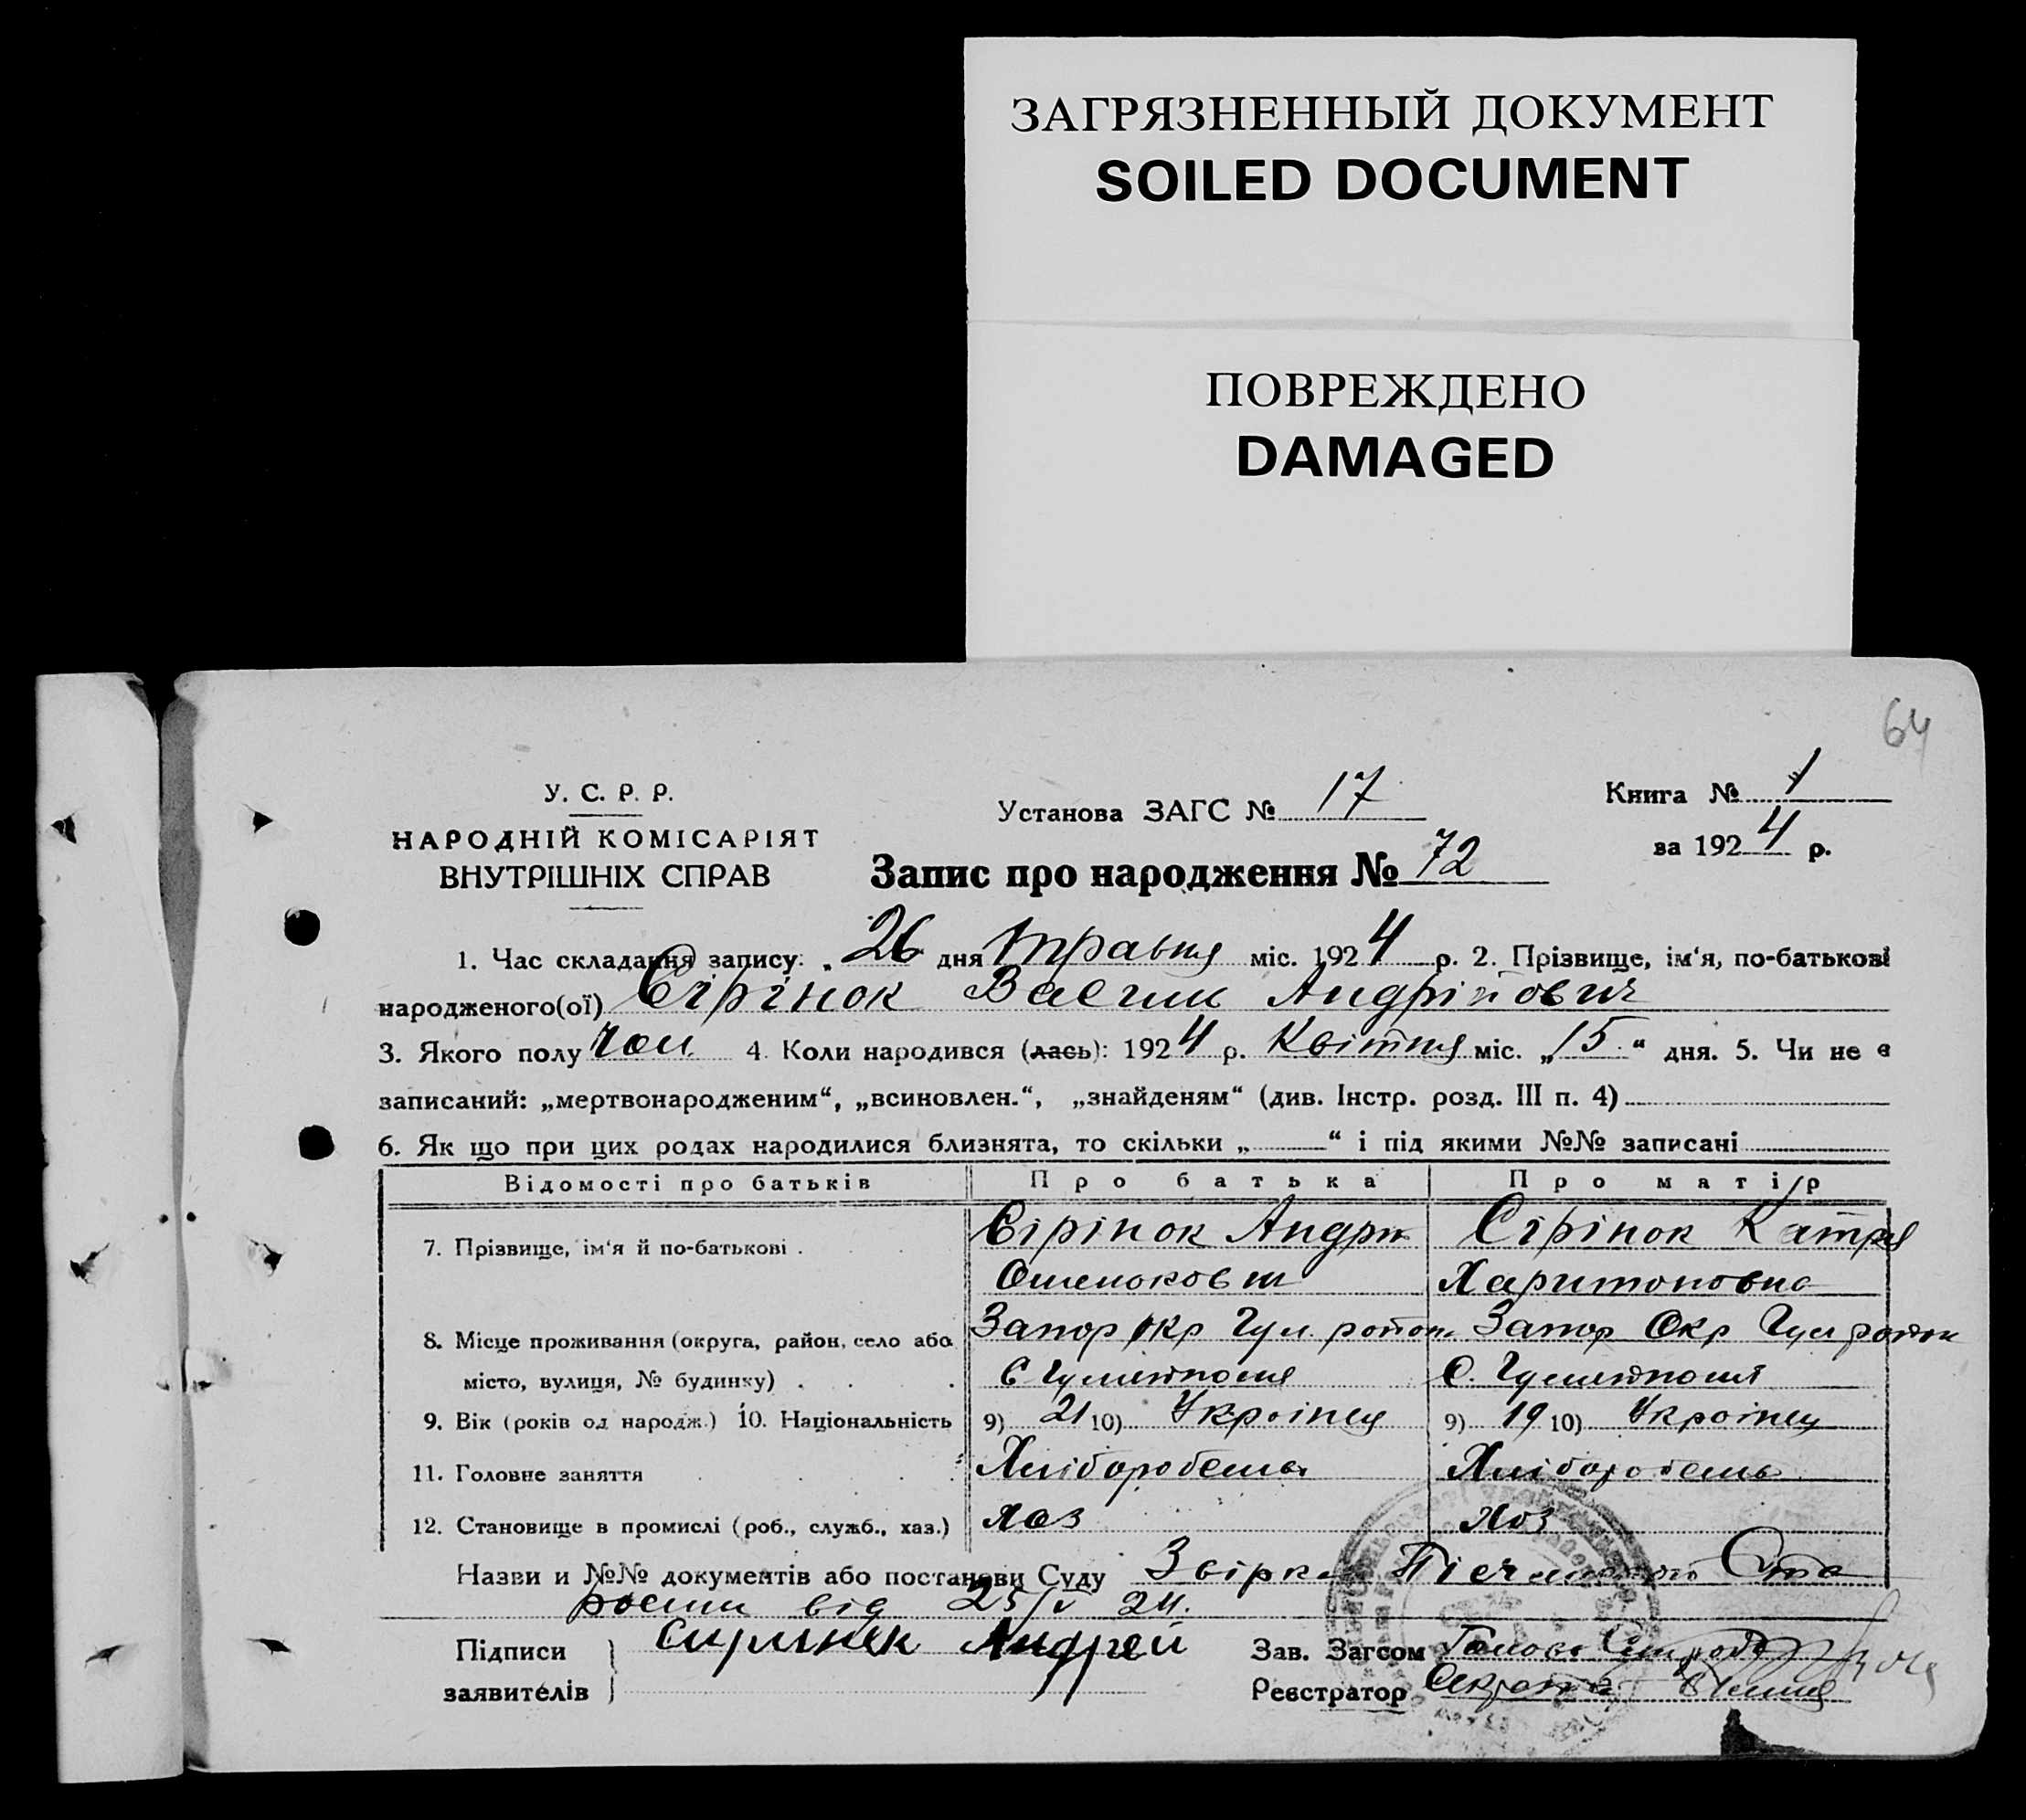 ЗАГРЯЗНЕННЫЙ ДОКУМЕНТ
SOILED DOCUMENT
ПОВРЕЖДЕНО
DAMAGED
64
У. С. Р. Р.
НАРОДНІЙ КОМІСАРІЯТ
ВНУТРІШНІХ СПРАВ
Установа ЗАГС № 17
Книга № 1
за 1924 р.
Запис про народження № 72
1. Час складання запису: „26 дня травня міс. 1924 р. 2. Прізвище, ім‘я, по-батькові
народженого(ої) Сірінок Василь Андрійович
3. Якого полу чол. 4. Коли народився (лась): 1924 р. Квітня міс. „15“ дня. 5. Чи не є
записаний: „мертвонародженим“, „всиновлен.“, „знайденям“ (див. Інстр. розд. III п. 4)
6. Як що при цих родах народилися близнята, то скільки „ “ і під якими №№ записані
Відомості про батьків Про батька Про матір
7. Прізвище, ім‘я й по-батькові . Сірінок Андрій Сірінок Катря
Харитоновна
8. Місце проживання (округа, район, село або Запор Окр Гул. район Запор Окр Гул район
місто, вулиця, № будинку) . С Гуляйполя С. Гуляйполя
9. Вік (років од народж.) 10. Національність 9) 21 10) Україпец 9) 19 10) Україпец
11. Головне заняття Хліборобець Хліборобець
12. Становище в промислі (роб., служб., хаз.) хаз хаз
Назви и №№ документів або постанови Суду Звірка
від 25/V 24.
Підписи заявителів Сиринек Андрей
Зав. Загсом Голова
Реєстратор Секрет